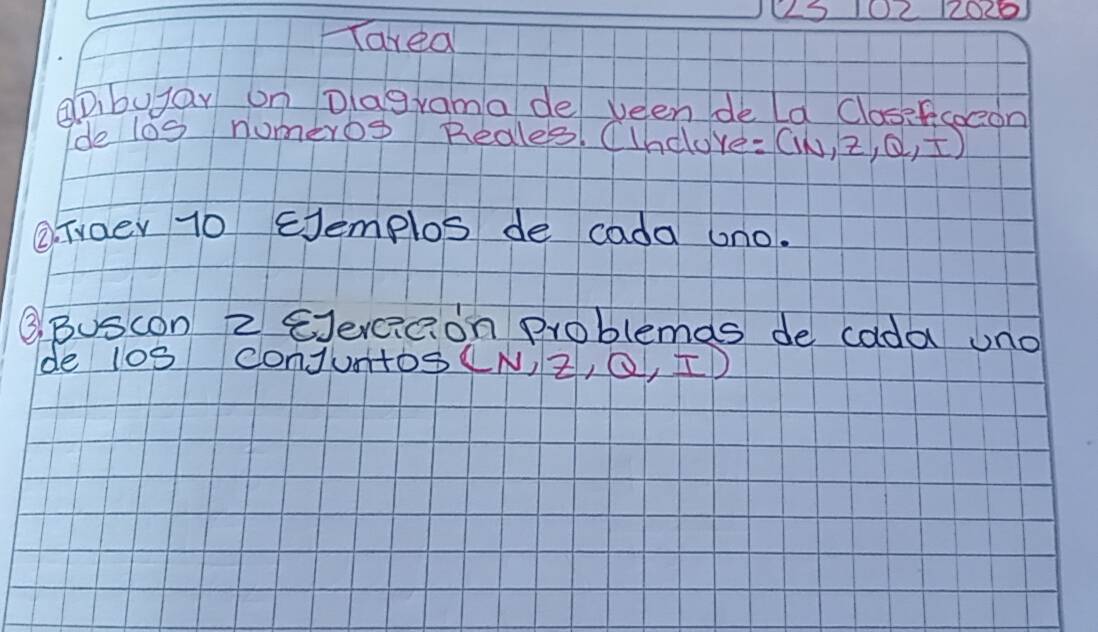 23 02 2026
Tarea
① Dibujar un Diagrama de veen de La Clasificacion
de los numeros Reales. (Incluye: (IN, Z, Q, I)
②. Traer 10 Ejemplos de cada uno.
③. Buscon 2 Ejercicion problemas de cada uno
de los conjuntos (N, Z, Q, I)